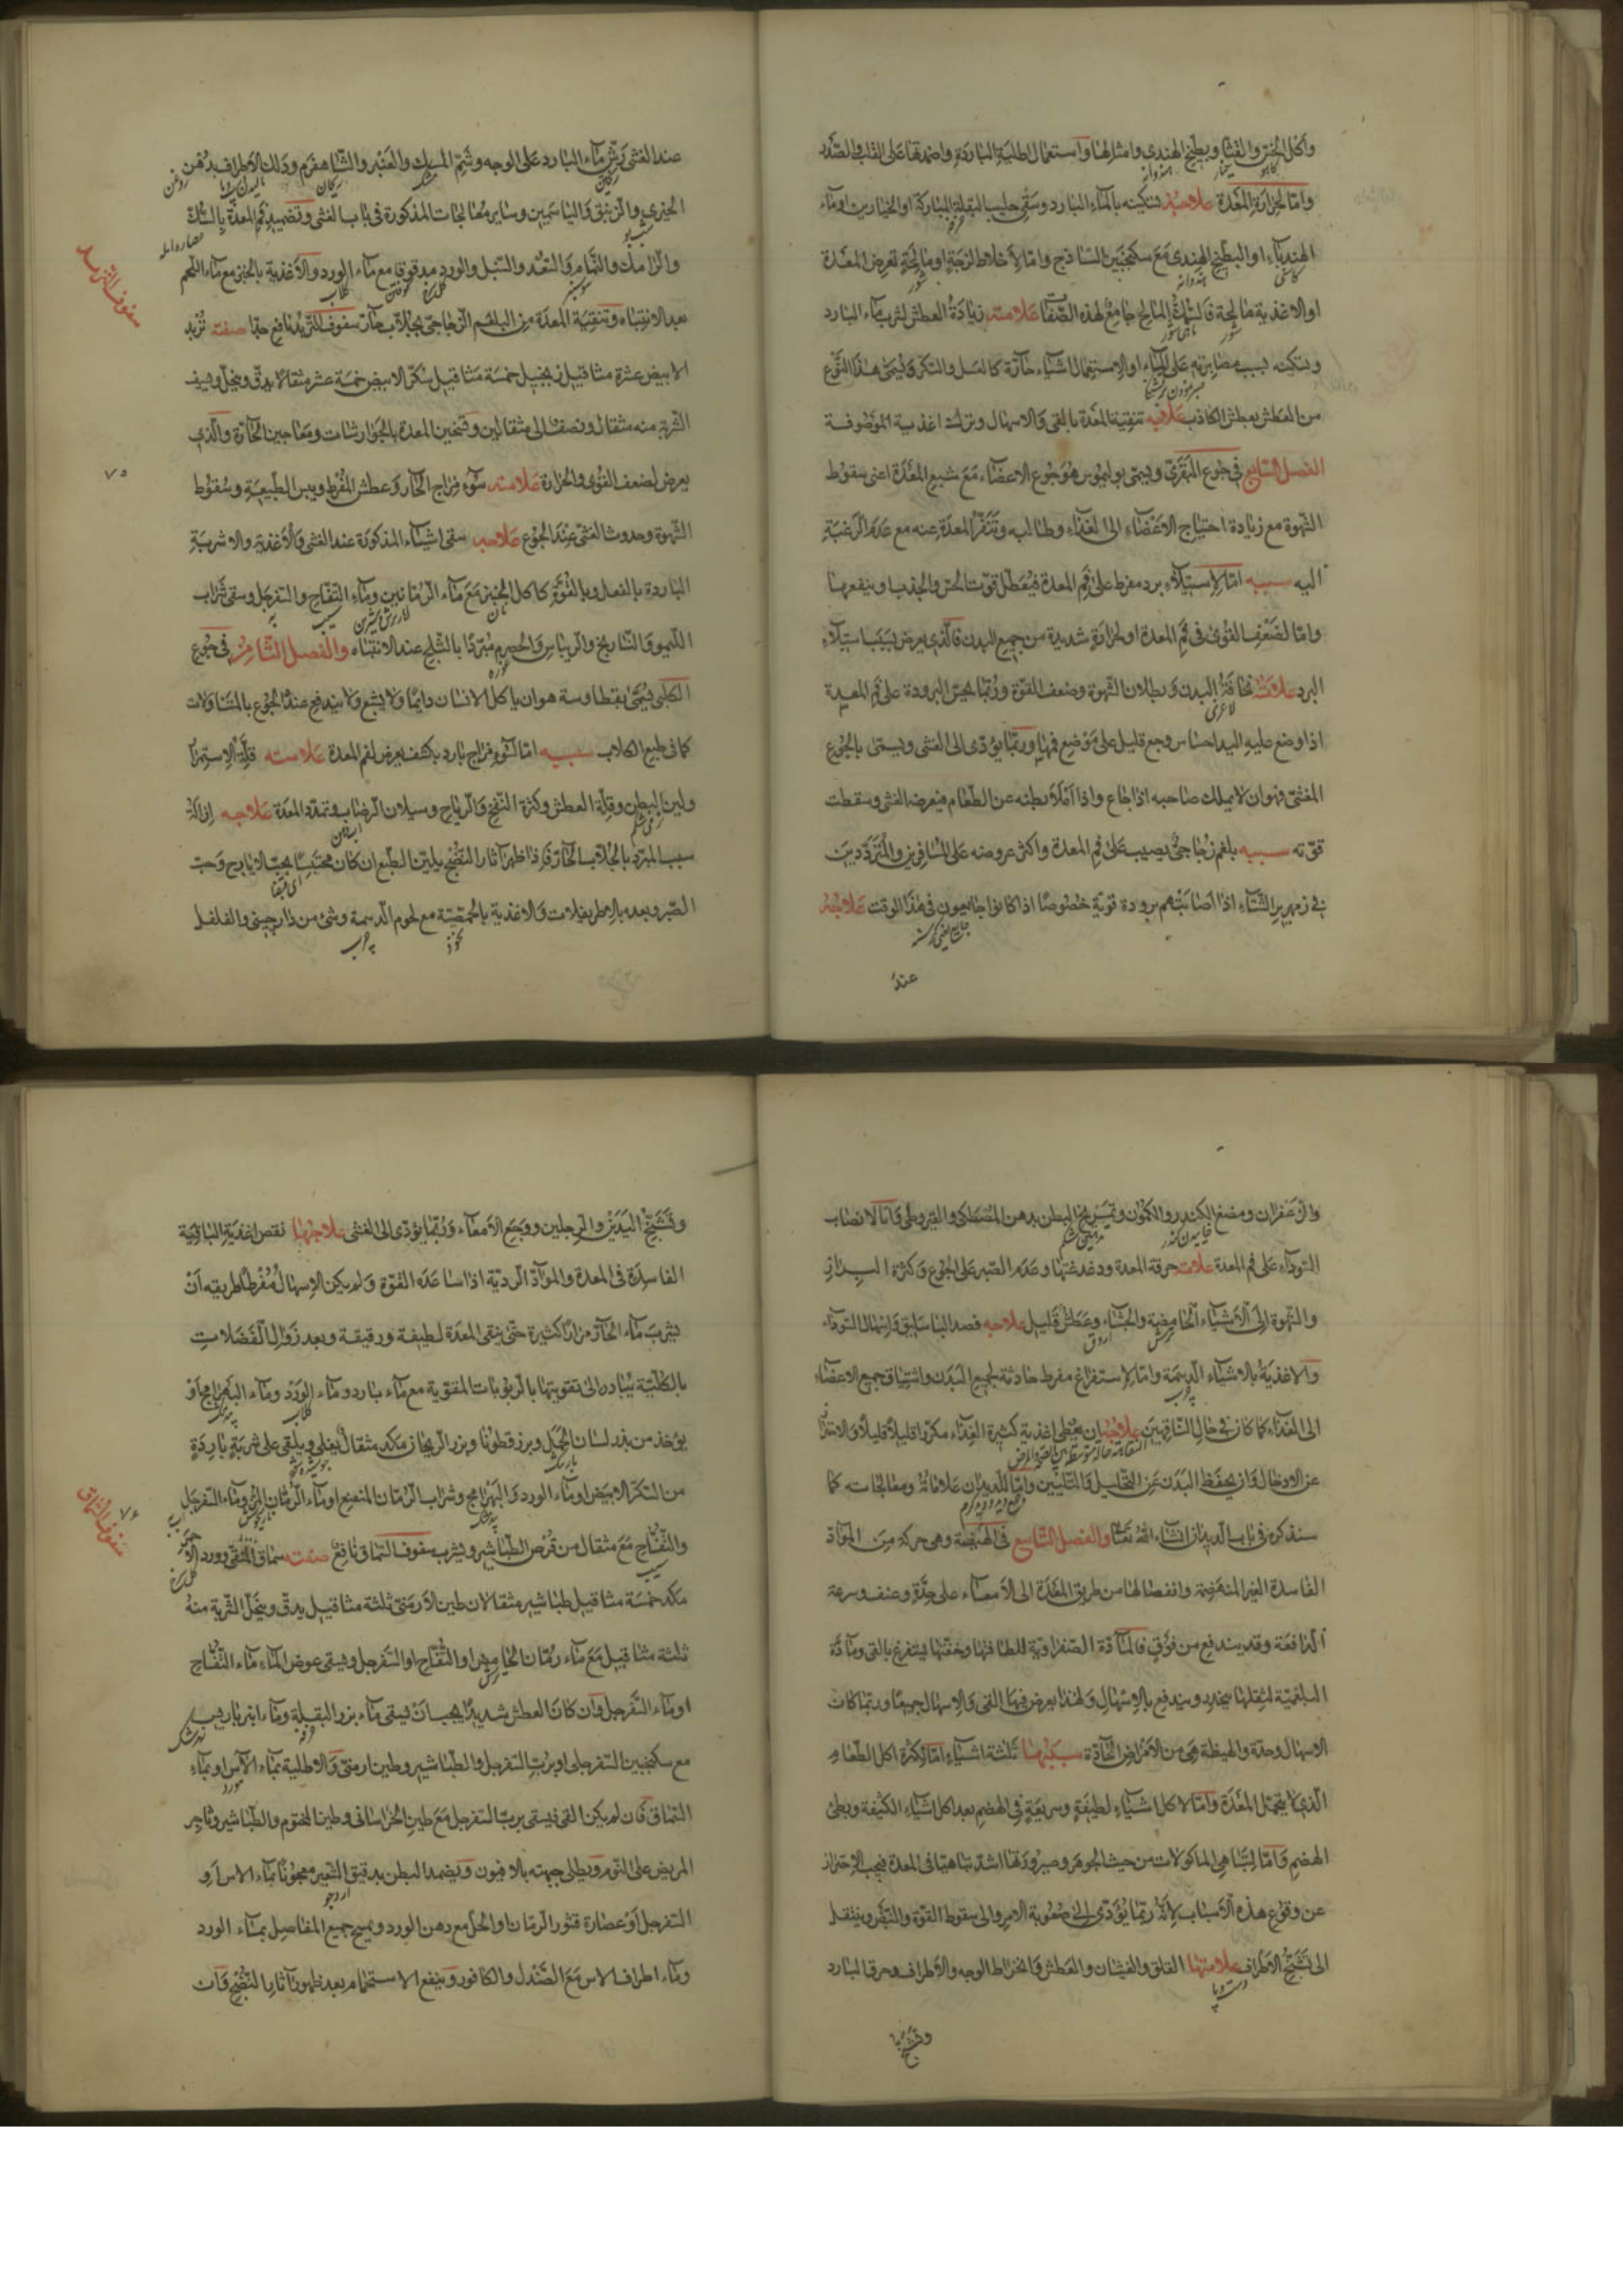 واكل الخس والقثا وبطيخ الهندى وامثالها واستعمال اطلية الباردة واضمدتها على القلب والصدر
واما لحرارة المعدة علامته تسكينه بالماء البارد وسقى حليب البقلة المباركة او الخيارين او ماء
الهندباء او البطيخ الهندى مع سكنجبين الساذج واما لاخلاط لزجة او مالحة تعرض المعدة
او الاغذية مالحة فالسمك المالح جامع لهذه الصفات علامته زيادة العطش لشرب ماء البارد
وتسكينه بسبب مصابرته على الماء او الاستعمال اشياء حارة كالعسل والسكر ويسمى هذا النوع
من العطش بعطش الكاذب علاجه تنقية المعدة بالقى والاسهال وترك اغذية الموصوفة
الفصل السابع فى جوع البقرى ويسمى بوليموس هو جوع الاعضاء مع شبع المعدة اعنى سقوط
الشهوة مع زيادة احتياج الاعضاء الى الغذاء وطالبه وتنفر المعدة عنه مع عدم الرغبة
اليه سببه اما لاستيلاء برد مفرط على فم المعدة فيعطل قوت الحس والجذب وينفعها
واما لضعف القوى فى فم المعدة او لحرارة شديدة من جميع البدن فالذى يعرض بسبب استيلاء
البرد علامته نحافة البدن وبطلان الشهوة وضعف القوة وربما يحس البرودة على فم المعدة
اذا وضع عليه اليد احساس وجع قليل على موضع فمها وربما يؤدى الى الغشى ويسمى بالجوع
المغشى فهو ان لا يملك صاحبه اذا جاع واذا امتلأ بطنه عن الطعام فيعرضه الغشى وسقطت
قوته سببه بلغم زجاجى يصيب على فم المعدة واكثر عروضه على المسافرين والمترددين
فى زمهرير الشتاء اذا اصابتهم برودة قوية خصوصا اذا كانوا جايعون فى هذا الوقت علاجه
عند
عند الغشى رش ماء البارد على الوجه وشم المسك والعنبر والشاهفرم ودلك الاطراف بدهن
الخيرى والزنبق والياسمين وساير معالجات المذكورة فى باب الغشى وتضميد فم المعدة بالسك
والرامك والنمام والسعد والسنبل والورد مدقوقا مع ماء الورد والاغذية بالخبز مع ماء اللحم
بعد الانتباه وتنقية المعدة من البلغم الزجاجى بجلاب حار سفوف التربد نافع جدا صفته تربد
الابيض عشرة مثاقيل زنجبيل خمسة مثاقيل سكر الابيض خمسة عشر مثقالا يدق وينخل ويسف
الشربة منه مثقال ونصف الى مثقالين وتسخين المعدة بالجوارشات ومعاجين الحارة والذى
يعرض لضعف القوى والحرارة علامته سوء مزاج الحار وعطش المفرط ويبس الطبيعة وسقوط
الشهوة وحدوث الغشى عند الجوع علاجه سقى اشياء المذكورة عند الغشى والاغذية والاشربة
الباردة بالفعل وبالقوة كاكل الخبز مع ماء الرمانين وماء التفاح والسفرجل وسقى شراب
الليمو والنارنج والريباس والحصرم مبردا بالثلج عند الانتباه والفصل الثامن فى جوع
الكلبى يسمى بقطاوسة هو ان ياكل الانسان دايما ولا يشبع ولا يندفع عند الجوع بالمتناولات
كما فى طبع الكلاب سببه اما لسوء مزاج بارد يكثف يعرض لفم المعدة علامته قلة الاستمراء
ولين البطن وقلة العطش وكثرة النفخ والرياح وسيلان الرضاب وتمدد المعدة علاجه ازالة
سبب المبرد بالجلاب الحار فاذا ظهر آثار النضج يلين الطبع ان كان محتبسا بحب الايارج وحب
الصبر وبعده بالاطريفلات والاغذية بالحمصية مع لحوم الدسمة وشئ من دارچينى والفلفل
سفوف التربد
٧٥
والزعفران ومضغ الكندر والكمون وتمريخ البطن بدهن المصطكى والقيروطى واما لانصباب
السوداء على فم المعدة علامته حرقة المعدة ودغدغتها وعدم الصبر على الجوع وكثرة البراز
والشهوة الى الاشياء الحامضة والجشاء وعطش قليل علاجه فصد الباسليق واسهال السوداء
والاغذية بالاشياء الدسمة واما لاستفراغ مفرط حادثة لجميع البدن واشتياق جميع الاعضاء
الى الغذاء كما كان فى حال الناقهين علاجه ان يعطى اغذية كثيرة الغذاء مكررا قليلا قليلا والاحتراز
عن الادخال وان يحفظ البدن عن التحليل والتليين واما للديدان علاماته ومعالجاته كما
سنذكره فى باب الديدان انشاء الله تعالى والفصل التاسع فى الهيضة وهى حركة من المواد
الفاسدة الغير المنهضمة وانفصالها من طريق المعدة الى الامعاء على حدة وعنف وسرعة
الدافعة وقد يندفع من فوق فالمادة الصفراوية للطافتها وخفتها يستفرغ بالقى ومادة
البلغمية لثقلها ينحدر ويندفع بالاسهال ولهذا يعرض فيها القى والاسهال جميعا وربما كان
الاسهال وحدة والهيظة هى من الامراض الحادة سببها ثلثة اشياء اما لكثرة اكل الطعام
الذى لا يتحمل المعدة واما لاكل اشياء لطيفة وسريعة فى الهضم بعد اكل اشياء الكثيفة وبطئ
الهضم واما لتباهى الماكولات من حيث الجوهر وصيرورتها اشد تباهيا فى المعدة فيجب الاحتراز
عن وقوع هذه الاسباب لانه ربما يؤدى الى صعوبة الامر والى سقوط القوة والنبض وينتقل
الى تشنج الاطراف علامتها القلق والغشيان والعطش وانخراط الوجه والاطراف وعرق البارد
وتشنج
وتشنج اليدين والرجلين ووجع الامعاء وربما يؤدى الى الغشى علاجها نقص اغذية الباقية
الفاسدة فى المعدة والمواد الردية اذا ساعده القوة ولم يكن الاسهال مفرطا طريقه ان
يشرب ماء الحار مرارا كثيرة حتى ينقى المعدة لطيفة ورقيقة وبعد زوال الفضلات
بالكلية يبادر الى تقويتها بالربوبات المقوية مع ماء بارد وماء الورد وماء البهرامج او
يؤخذ من بذر لسان الحمل وبزر قطونا وبزر الريحان مكد مثقال يغلى ويلقى على شربة باردة
من السكر الابيض او ماء الورد والبهرامج وشراب الرمان المنعنع او ماء الرمان المز وماء السفرجل
والتفاح مع مثقال من قرص الطباشير ويشرب سفوف السماق نافع صفته سماق المنقى وورد الاحمر
مكد خمسة مثاقيل طباشير مثقالان طين الارمنى ثلثة مثاقيل يدق وينخل الشربة منه
ثلثة مثاقيل مع ماء رمان الحامض او التفاح او السفرجل ويسقى عوض الماء ماء التفاح
او ماء السفرجل فان كان العطش شديدا يجب ان يسقى ماء بزر البقلة وماء انبرباريس
مع سكنجبين السفرجلى او برب السفرجل والطباشير وطين ارمنى والاطلية بماء الآس او بماء
السماق فان لم يكن القى فيسقى برب السفرجل مع طين الخراسانى وطين المختوم والطباشير وتاجر
المريض على النوم ويطلى جبهته بالافيون ويضمد البطن بدقيق الشعير معجونا بماء الاس او
السفرجل او عصارة قشور الرمان او الخل مع دهن الورد ويمسح جميع المفاصل بماء الورد
وماء اطراف الاس مع الصندل والكافور وينفع الاستحمام بعد ظهور آثار النضج وان
سفوف السماق
٧٦